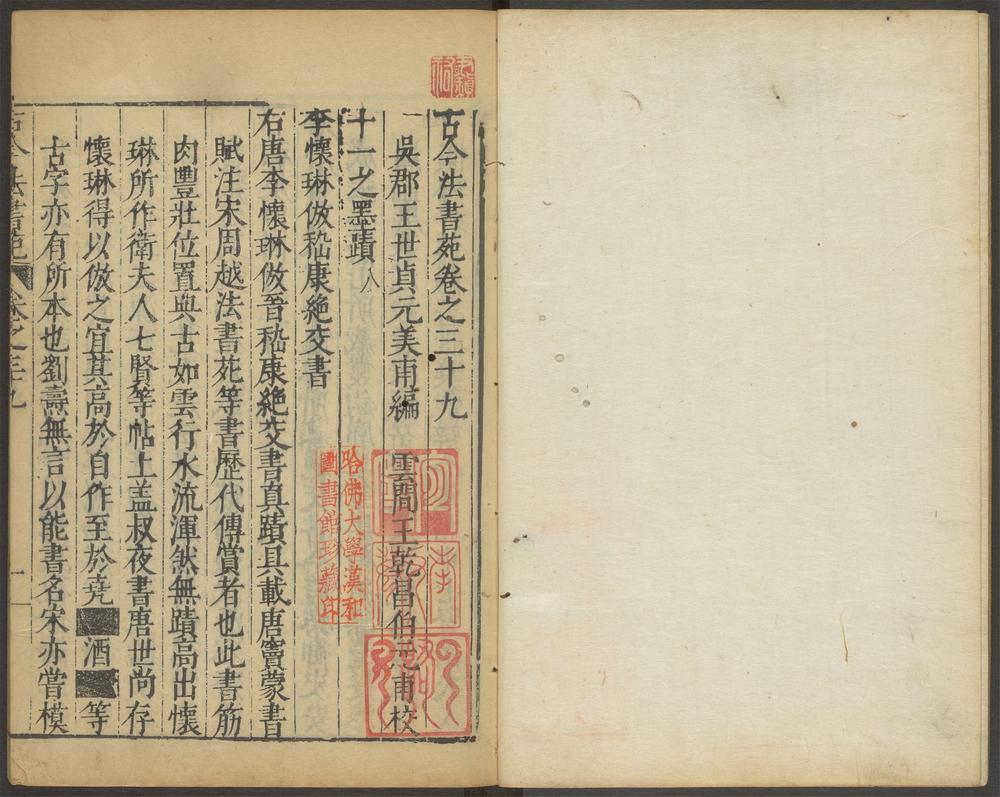 古今法書苑卷之三十九
吳郡王世貞元美甫編 雲間王乾昌伯元甫校
十一之墨蹟八
李懷琳倣嵇康絶交書
右唐李懷琳倣晉嵇康絶交書真蹟具載唐竇蒙書
賦注宋周越法書苑等書歷代傳賞者也此書筋
肉豐壯位置與古如雲行水流渾然無蹟高出懷
琳所作衛夫人七賢等帖上盖叔夜書唐世尚存
懷琳得以倣之宜其高於自作至於堯 酒 等
古字亦有所本也劉燾無言以能書名宋亦嘗模
古今法書苑 卷之三十九 一
哈佛大學漢和
圖書館珍藏印